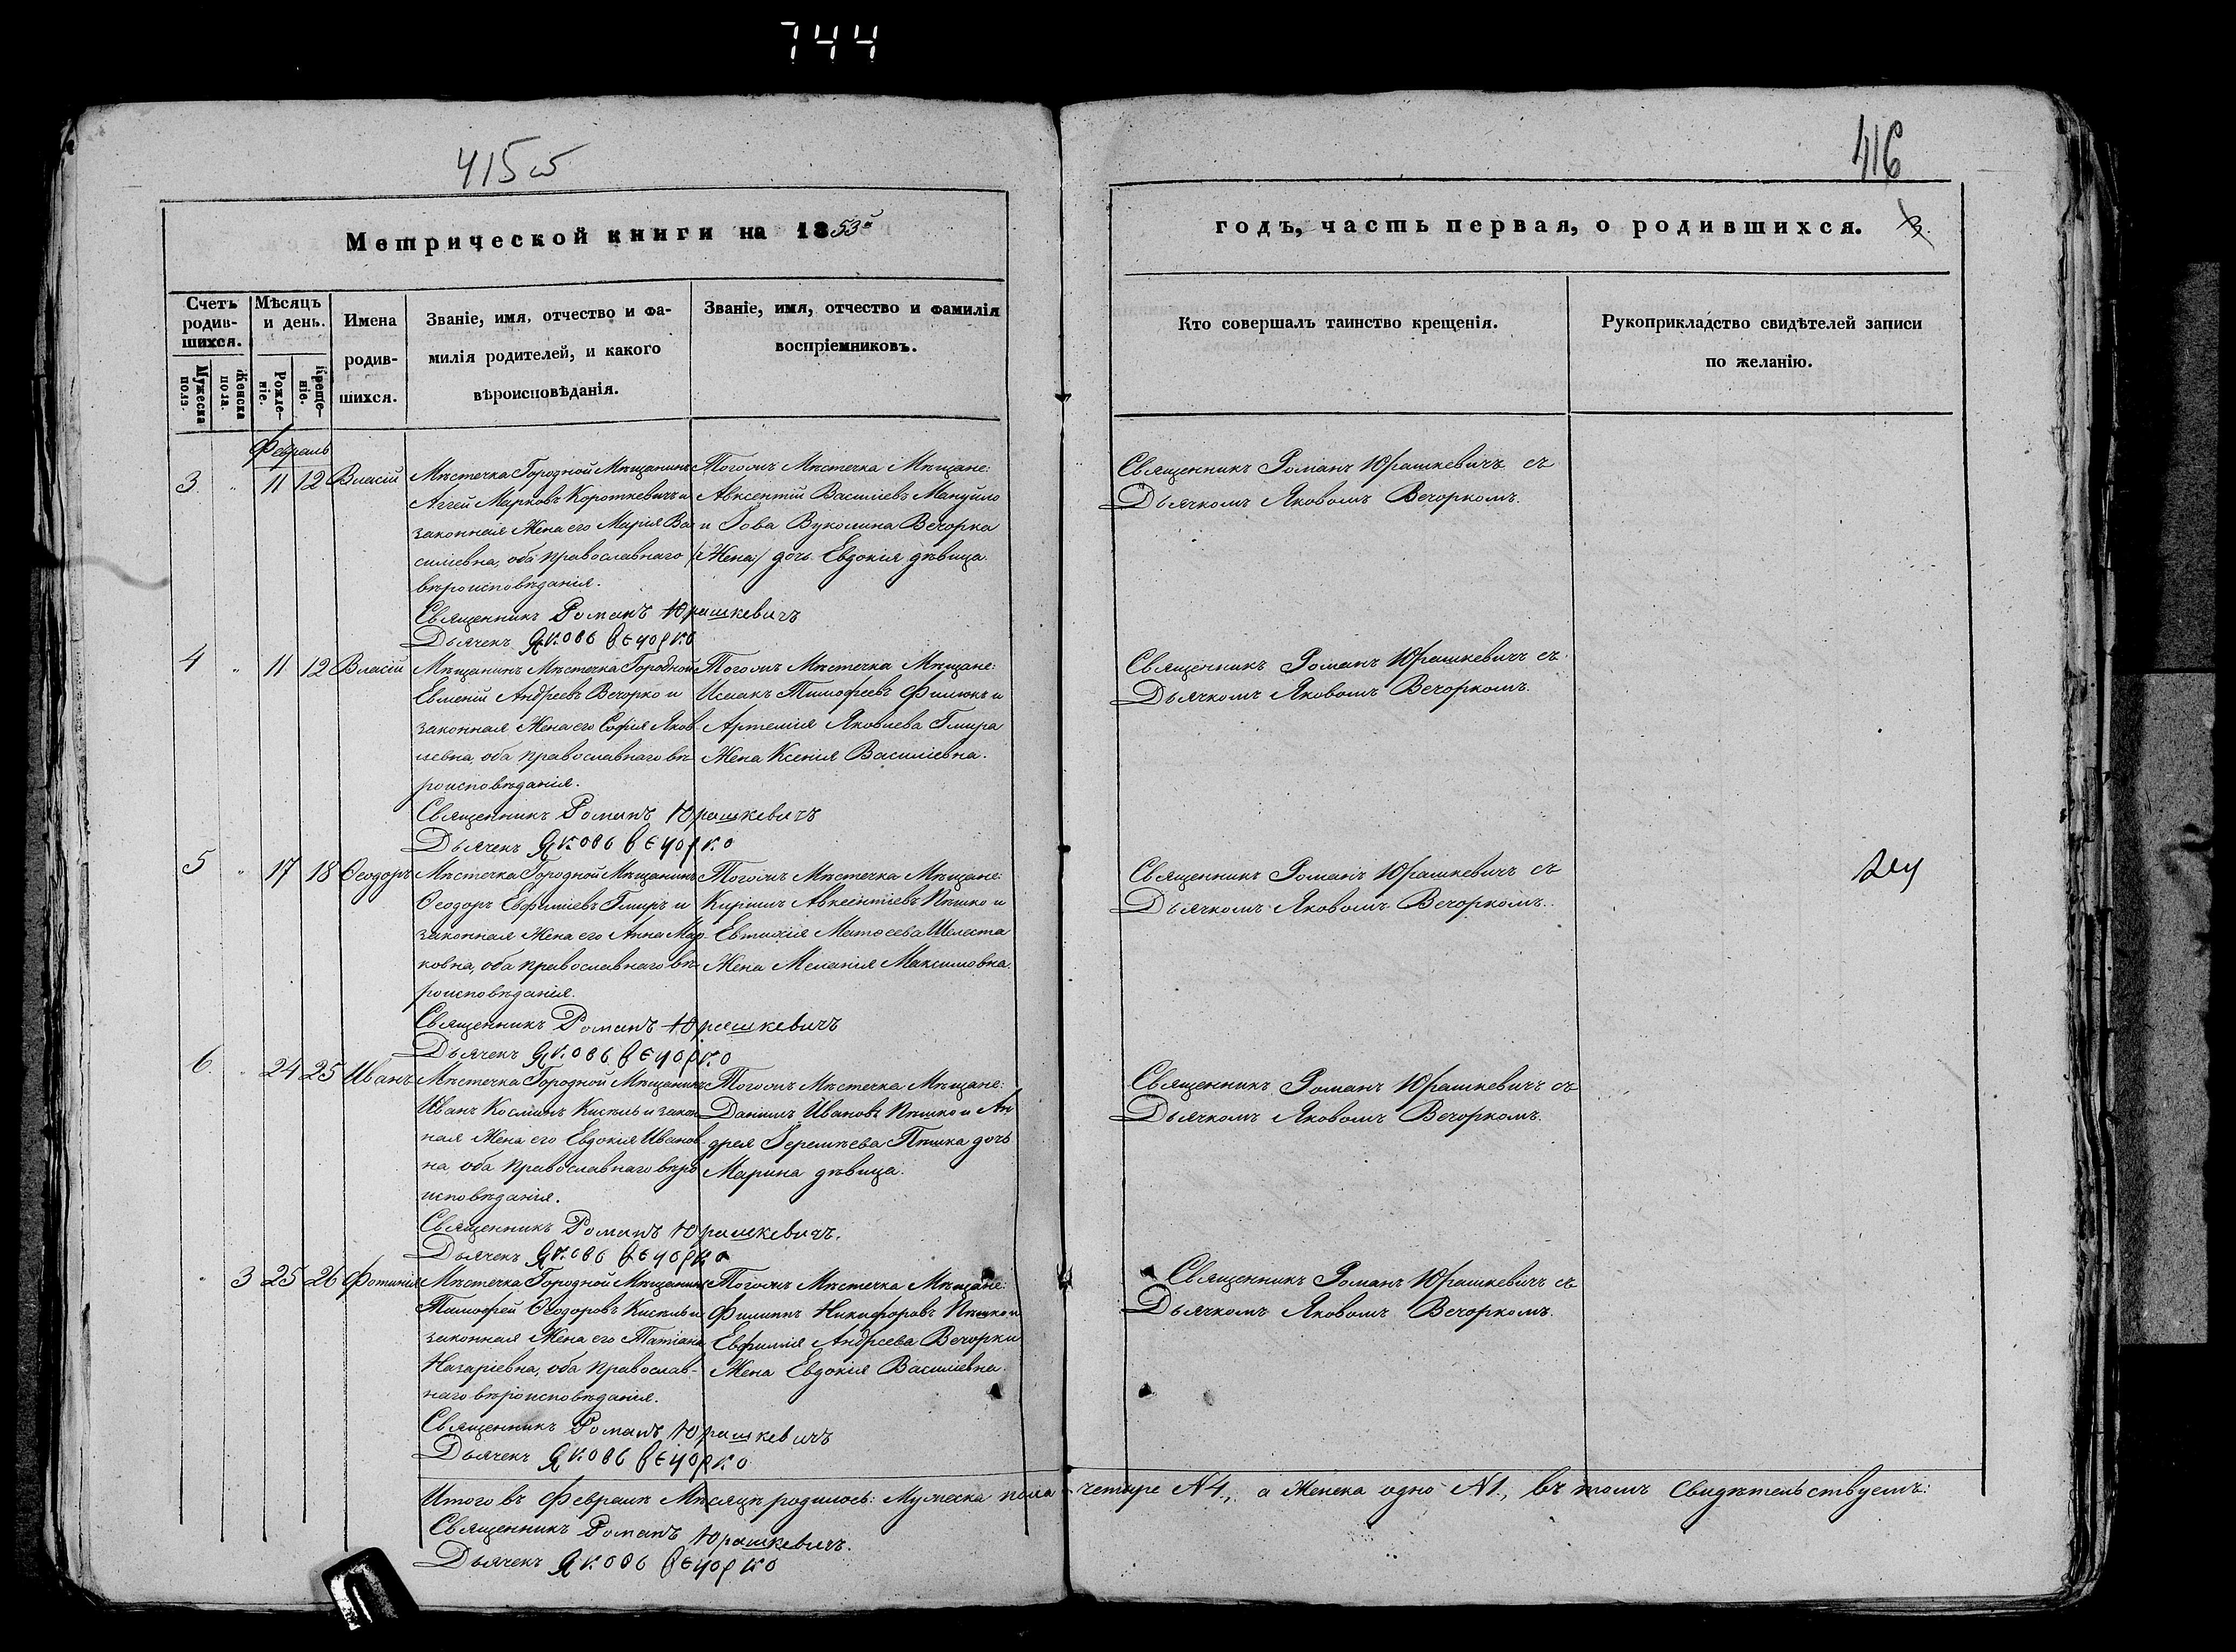 744
415 об
416
Метрической книги на 1853й
годъ, часть первая, о родившихся. 3.
Счетъ родив-шихся.
Мужеска пола.
Женска пола.
Мѣсяцъ и день.
Рожде-ніе.
Креще-ніе.
Имена родив-шихся.
Званіе, имя, отчество и фа-
милія родителей, и какого
вѣроисповѣданія.
Званіе, имя, отчество и фамилія
воспріемниковъ.
Кто совершалъ таинство крещенія.
Рукоприкладство свидѣтелей записи
по желанію.
Февраль
3 " 11 12 Власій
Мѣстечка Городной Мѣщанинъ
Аггей Марковъ Короткевичъ и
законная Жена его Марія Ва-
силіевна, оба православнаго
вѣроисповѣданія.
Священникъ Романъ Юрашкевичъ
Дьячекъ Яковъ Вечорко
Тогожъ Мѣстечка Мѣщане:
Авксентій Василіевъ Мануйло
и Іова Вуколина Вечорка
/:Жена:/ дочь Евдокія дѣвица.
Священникъ Романъ Юрашкевичъ съ
Дьячкомъ Яковомъ Вечоркомъ.
4 " 11 12 Власій
Мѣщанинъ Мѣстечка Городной
Евмений Андреевъ Вечорко и
законная Жена его Софія Яков-
левна, оба православнаго вѣ-
роисповѣданія.
Священникъ Романъ Юрашкевичъ
Дьячекъ Яковъ Вечорко
Тогожъ Мѣстечка Мѣщане:
Исаакъ Тимофеевъ Филюкъ и
Артемія Яковлева Гмира
Жена Ксенія Василіевна.
Священникъ Романъ Юрашкевичъ съ
Дьячкомъ Яковомъ Вечоркомъ.
5 " 17 18 Ѳеодоръ
Мѣстечка Городной Мѣщанинъ
Ѳеодоръ Евфиміевъ Гмиръ и
законная Жена его Анна Мар-
ковна, оба православнаго вѣ-
роисповѣданія.
Священникъ Романъ Юрашкевичъ
Дьячекъ Яковъ Вечорко
Тогожъ Мѣстечка Мѣщане:
Кириллъ Авксентіевъ Пѣшко и
Евтихія Матѳеева Шелеста
Жена Меланія Максимовна.
Священникъ Романъ Юрашкевичъ съ
Дьячкомъ Яковомъ Вечоркомъ.
6. " 24 25 Иванъ
Мѣстечка Городной Мѣщанинъ
Иванъ Косминъ Кисѣль и закон-
ная Жена его Евдокія Иванов-
на, оба православнаго вѣро-
исповѣданія.
Священникъ Романъ Юрашкевичъ.
Дьячекъ Яковъ Вечорко
Тогожъ Мѣстечка Мѣщане:
Даніилъ Ивановъ Пѣшко и Ан-
дрея Іеремѣева Пѣшка дочь
Марина дѣвица.
Священникъ Романъ Юрашкевичъ съ
Дьячкомъ Яковомъ Вечоркомъ.
" 3 25 26 Фотинія
Мѣстечка Городной Мѣщанинъ
Тимофей Ѳеодоровъ Кисѣль и
законная Жена его Татіана
Назаріевна, оба Православ-
наго вѣроисповѣданія.
Священникъ Романъ Юрашкевичъ
Дьячекъ Яковъ Вечорко
Тогожъ Мѣстечка Мѣщане:
Филиппъ Никифоровъ Пѣшко и
Евфимія Андреева Вечорки
Жена Евдокія Василіевна.
Священникъ Романъ Юрашкевичъ съ
Дьячкомъ Яковомъ Вечоркомъ.
Итого въ Февралѣ Мѣсяцѣ родилось: Мужеска пола четыре N4, а Женска одно N1, въ томъ Свидѣтельствуемъ:
Священникъ Романъ Юрашкевичъ.
Дьячекъ Яковъ Вечорко